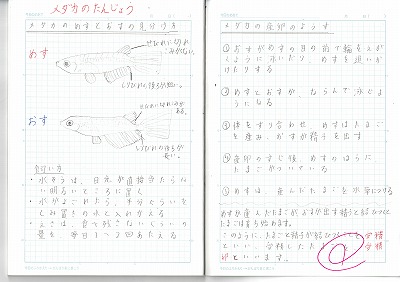 メダカのたんじょう
メダカのめすとおすの見分け方
めす
せびれに切れ
こみがない。
しりびれの後ろが短い。
おす
せびれに切れこみが
ある。
しりびれの後ろが
長い。
かい方
・水そうは、日光が直接当たらな
い明るいところに置く
・水がよごれたら、半分ぐらいを
くみ置きの水と入れかえる
・えさは、食べ残さないくらいの
量を毎日1〜2回あたえる
メダカの産卵のようす
①おすがめすの目の前で輪をえがく
ように泳いだり、めすを追いか
けたりする
②めすとおすが、ならんで泳ぐよ
うになる
③体をすり合わせ、めすはたまご
を産み、おすが精子を出す
④産卵のすぐ後、めすのはらに
たまごがついている
⑤めすは、産んだたまごを水草につける
めすが産んだたまごが、おすが出す精子と結びつくと
たまごは育ち始めます。
このように、たまごと精子が結びつくことを受精
といい、受精したたまごを受精
卵といいます。